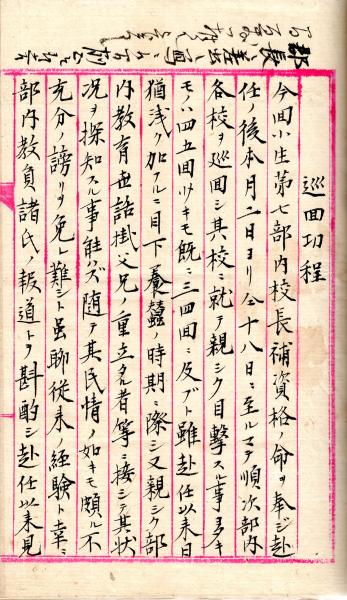 部長ヘ差出
巡回功程
今回小生第七部内校長補資格ノ命ヲ奉ジ赴
任ノ後本月二日ヨリ仝十八日ニ至ルマデ順次部内
各校ヲ巡回シ其校ニ就テ親シク目撃スル事多キ
モノハ四五回少キモ既ニ三四回ニ及ブト雖赴任以来日
猶浅ク加フルニ目下養蠶ノ時期ニ際シ又親シク部
内教育世話掛父兄ノ重立タル者等ニ接シテ其状
況ヲ探知スル事能ハズ随テ其民情ノ如キモ頗ル不
充分ノ謗リヲ免レ難シト虽聊従来ノ経験ト幸ニ
部内教員諸氏ノ報道トヲ斟酌シ赴任以来見